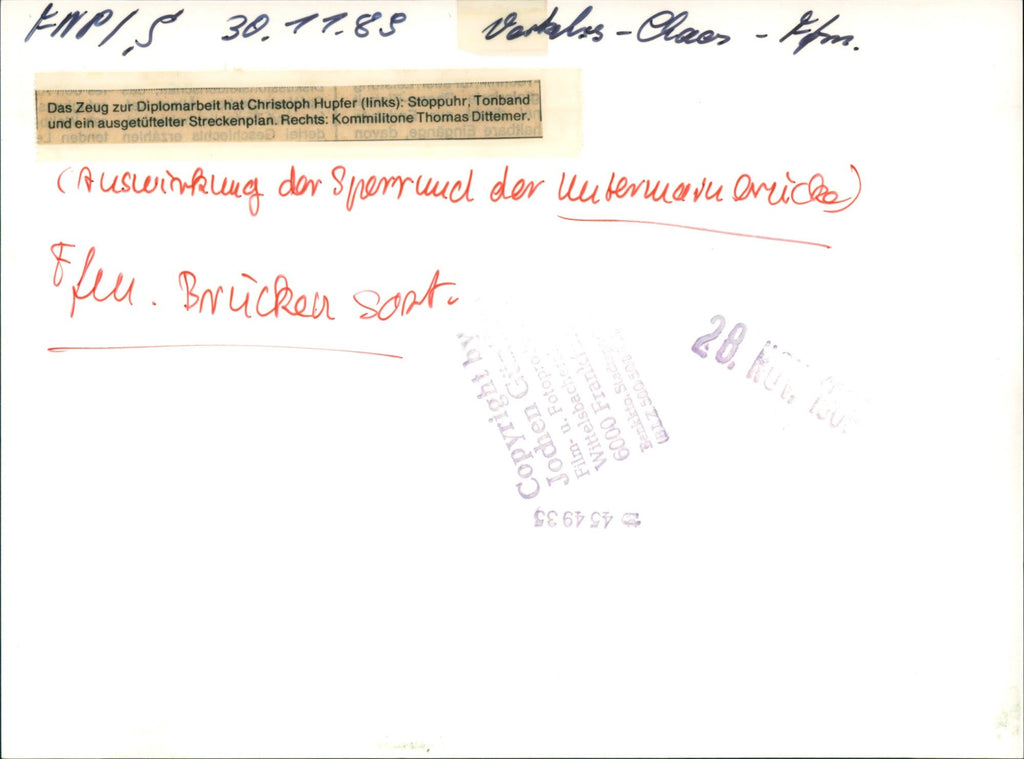 FNP/S 30.11.89 Verkehrs-Chaos - Ffm.
Das Zeug zur Diplomarbeit hat Christoph Hupfer (links): Stoppuhr, Tonband
und ein ausgetüftelter Streckenplan. Rechts: Kommilitone Thomas Dittemer.
(Auswirkung der Sperrund der Untermainbrücke)
Ffm. Brücken sort.
28. NOV.
Copyright by
Jochen
Film- u.
Wittelsbacher
6000 Frankf
Bankkto. Stadtsp
(BLZ 500 501
454935